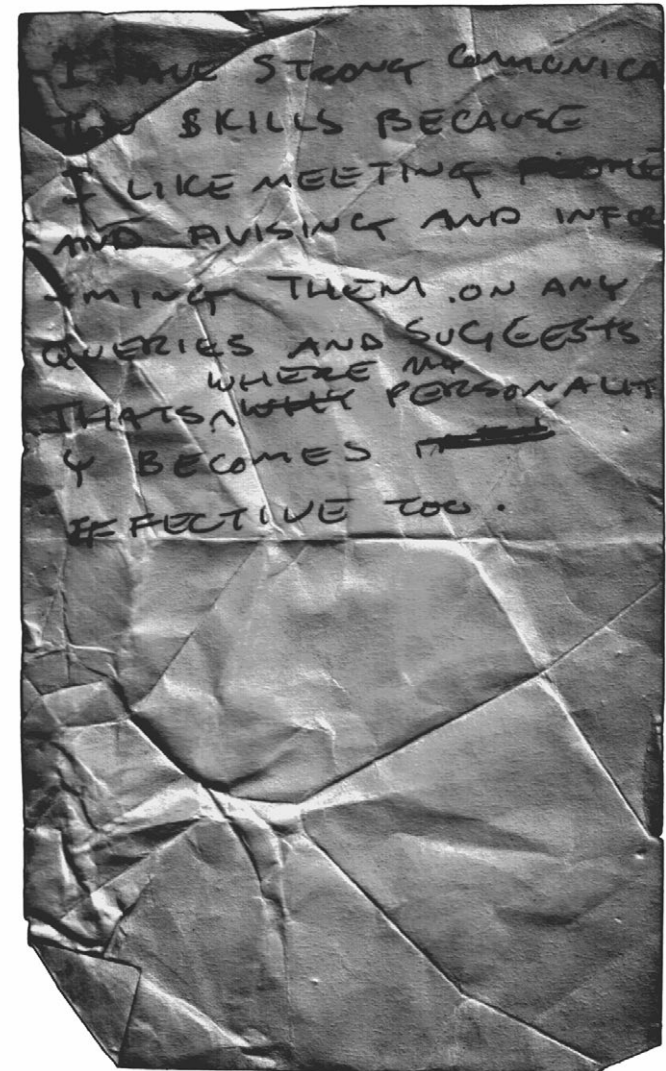 I HAVE STRONG COMMUNICA
TION SKILLS BECAUSE
I LIKE MEETING PEOPLE
AND AVISING AND INFOR
-MING THEM. ON ANY
QUERIES AND SUGGESTS
WHERE MY
THATS WHY PERSONALIT
Y BECOMES
EFFECTIVE TOO.